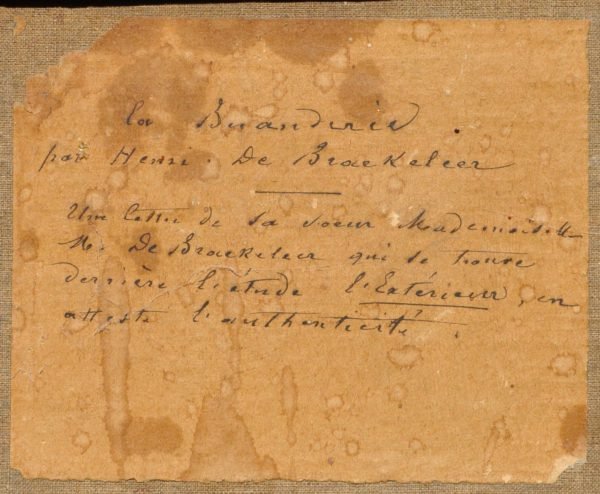 la Buanderie
par Henri. De Braekeleer
Une lettre de sa soeur Mademoiselle
M. De Braekeleer qui se trouve
derrière l'étude l'Extérieur, en
atteste l'authenticité.